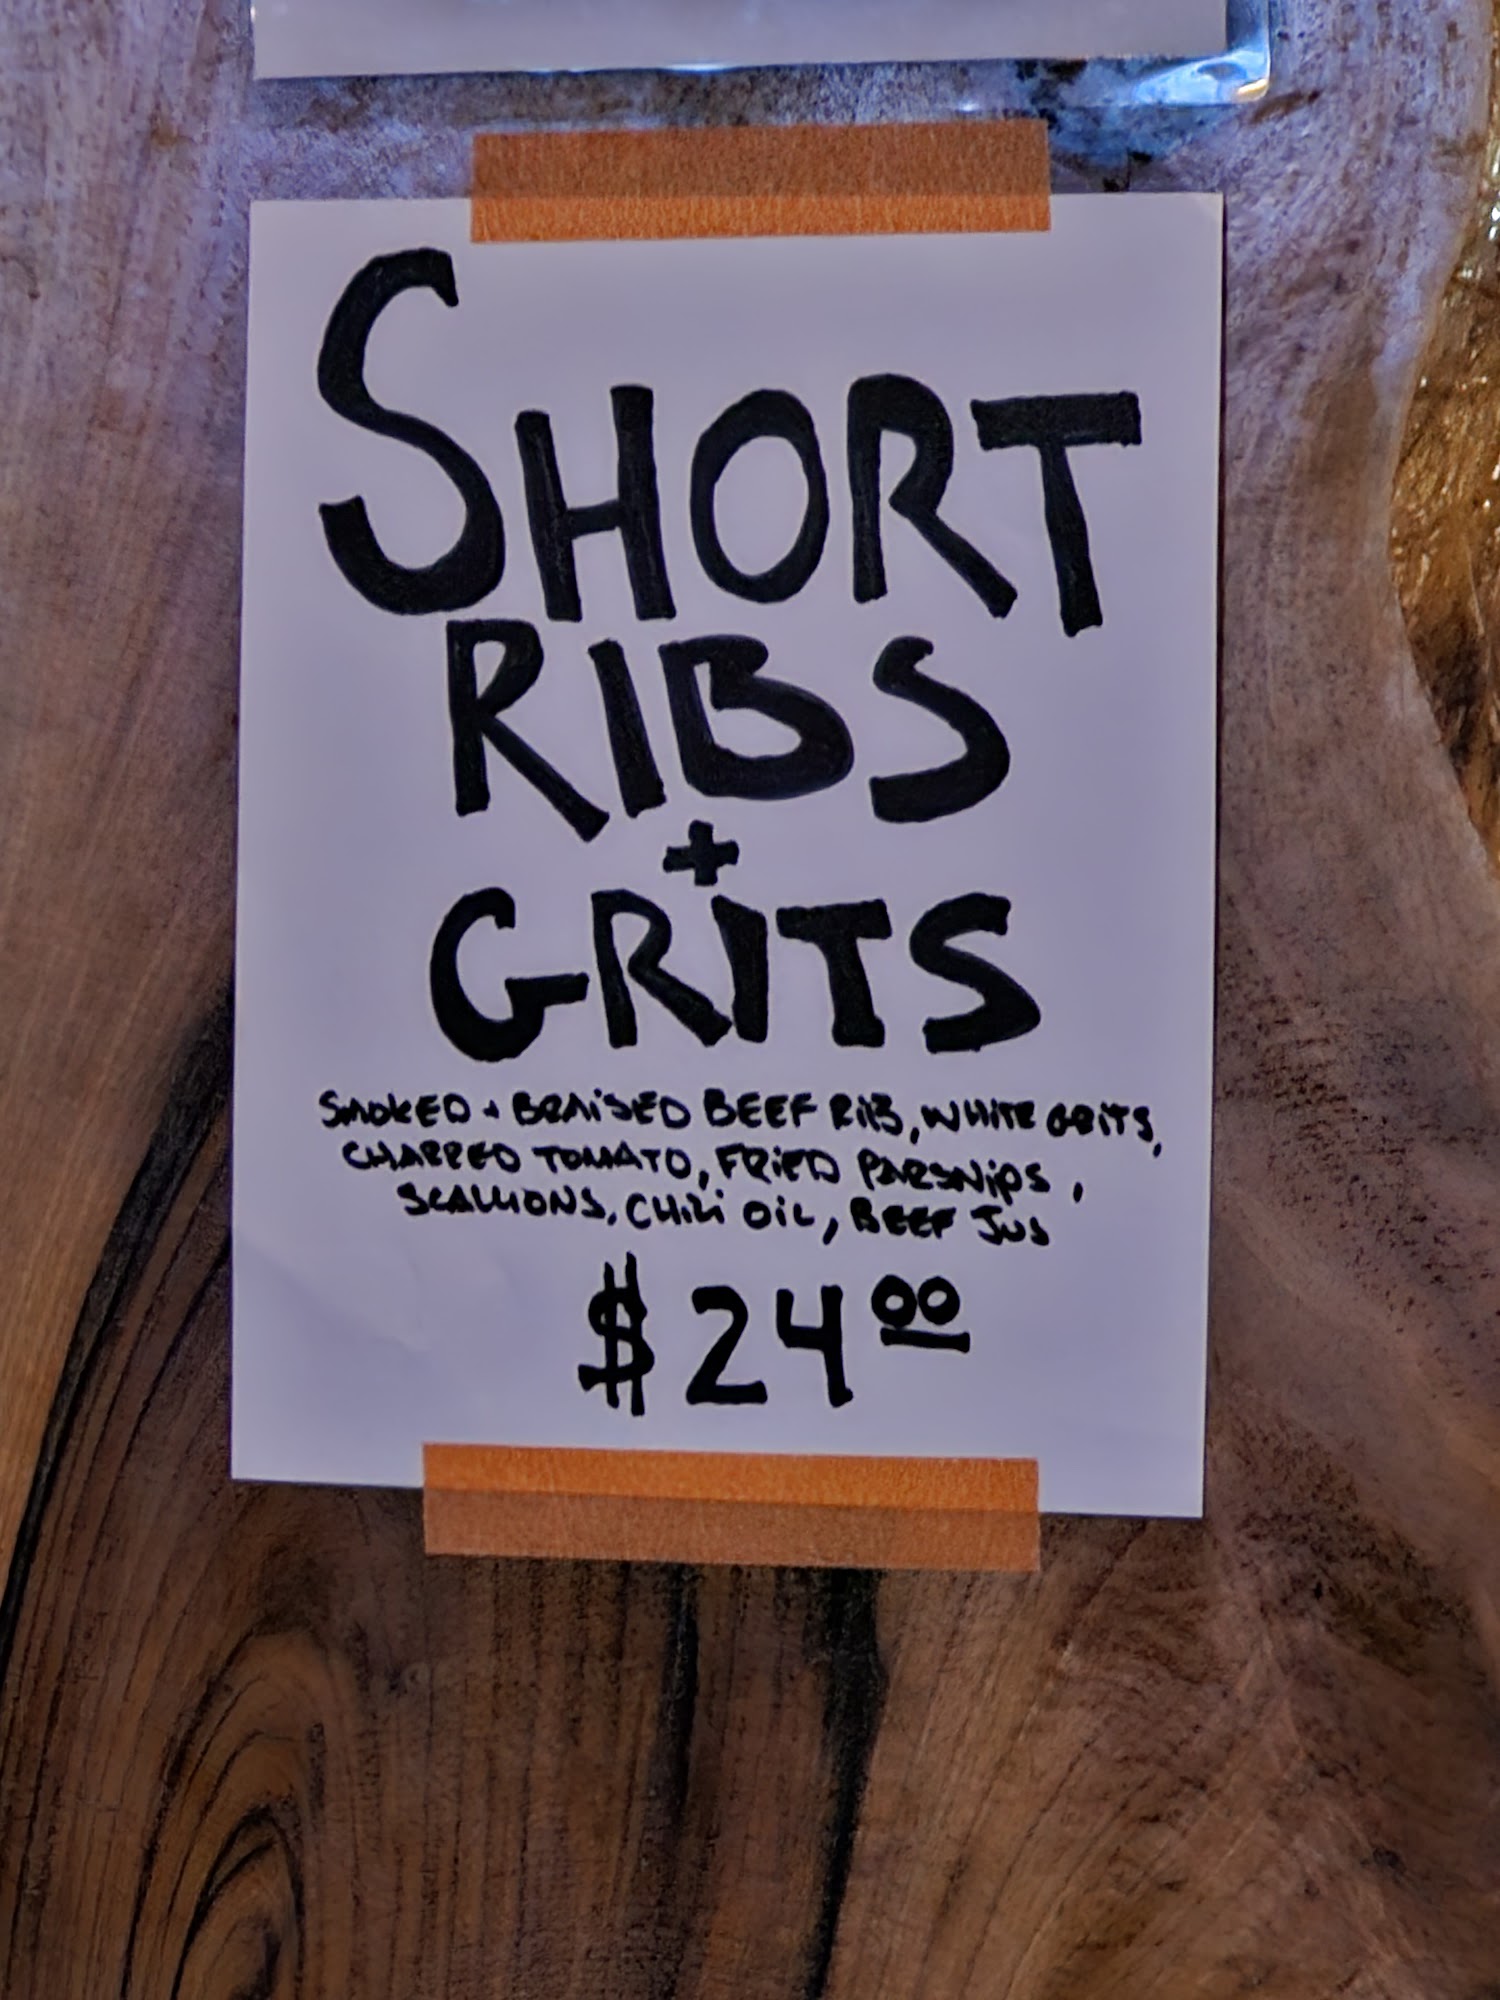 SHORT
RIBS
+
GRITS
SMOKED + BRAISED BEEF RIB, WHITE GRITS,
CHARRED TOMATO, FRIED PARSNIPS,
SCALLIONS, CHILI OIL, BEEF JUS
$24.00